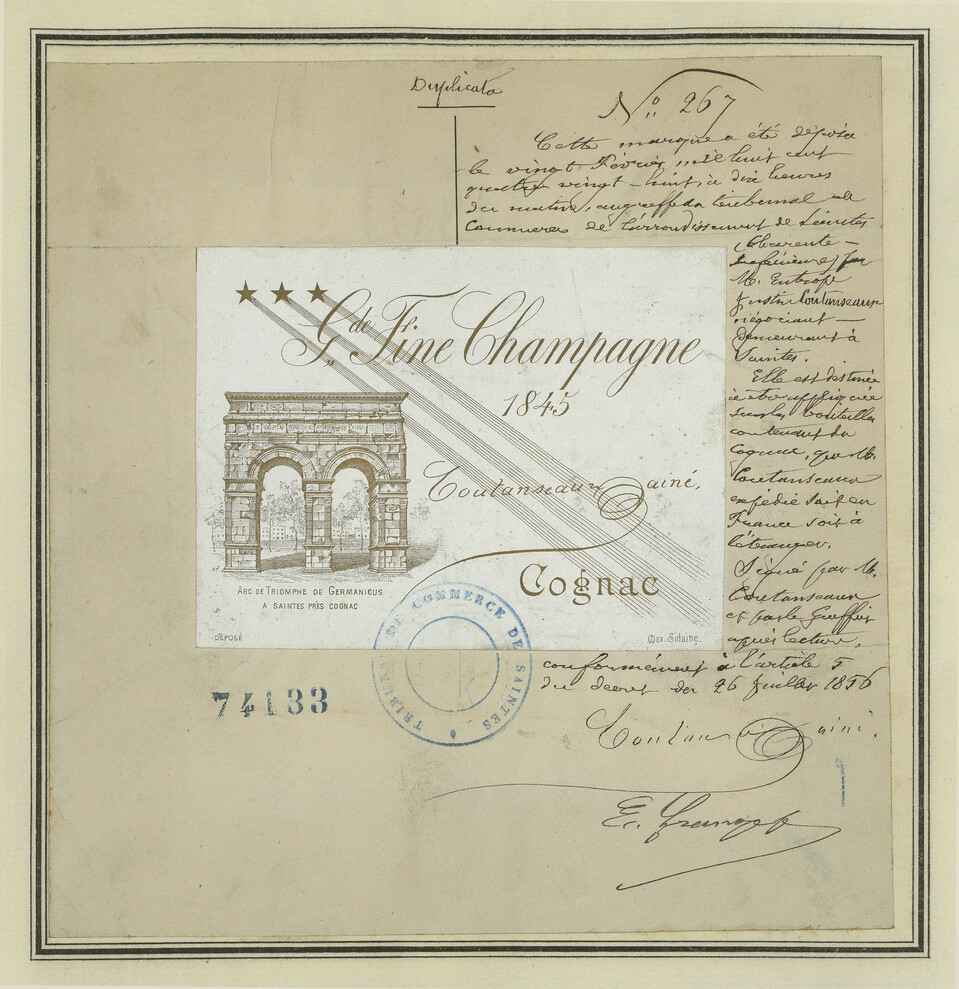 Duplicata
N° 267
Cette marque a été déposée
le vingt Février mil huit cent
quatre vingt-huit, à dix heures
du matin, au greffe du tribunal de
Commerce de l'arrondissement de Saintes
Charente-
Inférieure, par
M. Eutrope
Justin Coutanseaux
négociant-
demeurant à
Saintes.
Elle est destinée
à être appliquée
sur les bouteilles
contenant du
Cognac, que M.
Coutanseaux
expédie soit en
France soit à
l'étranger.
Signé par M.
Coutanseaux
et par le Greffier
après lecture,
conformément à l'article 5
du décret du 26 Juillet 1856
Coutanseaux ainé.
Gde Fine Champagne
1845
Coutanseaux ainé.
Cognac
ARC DE TRIOMPHE DE GERMANICUS
A SAINTES PRÈS COGNAC
DÉPOSÉ
Max. Sidaine.
TRIBUNAL DE COMMERCE DE SAINTES
74133